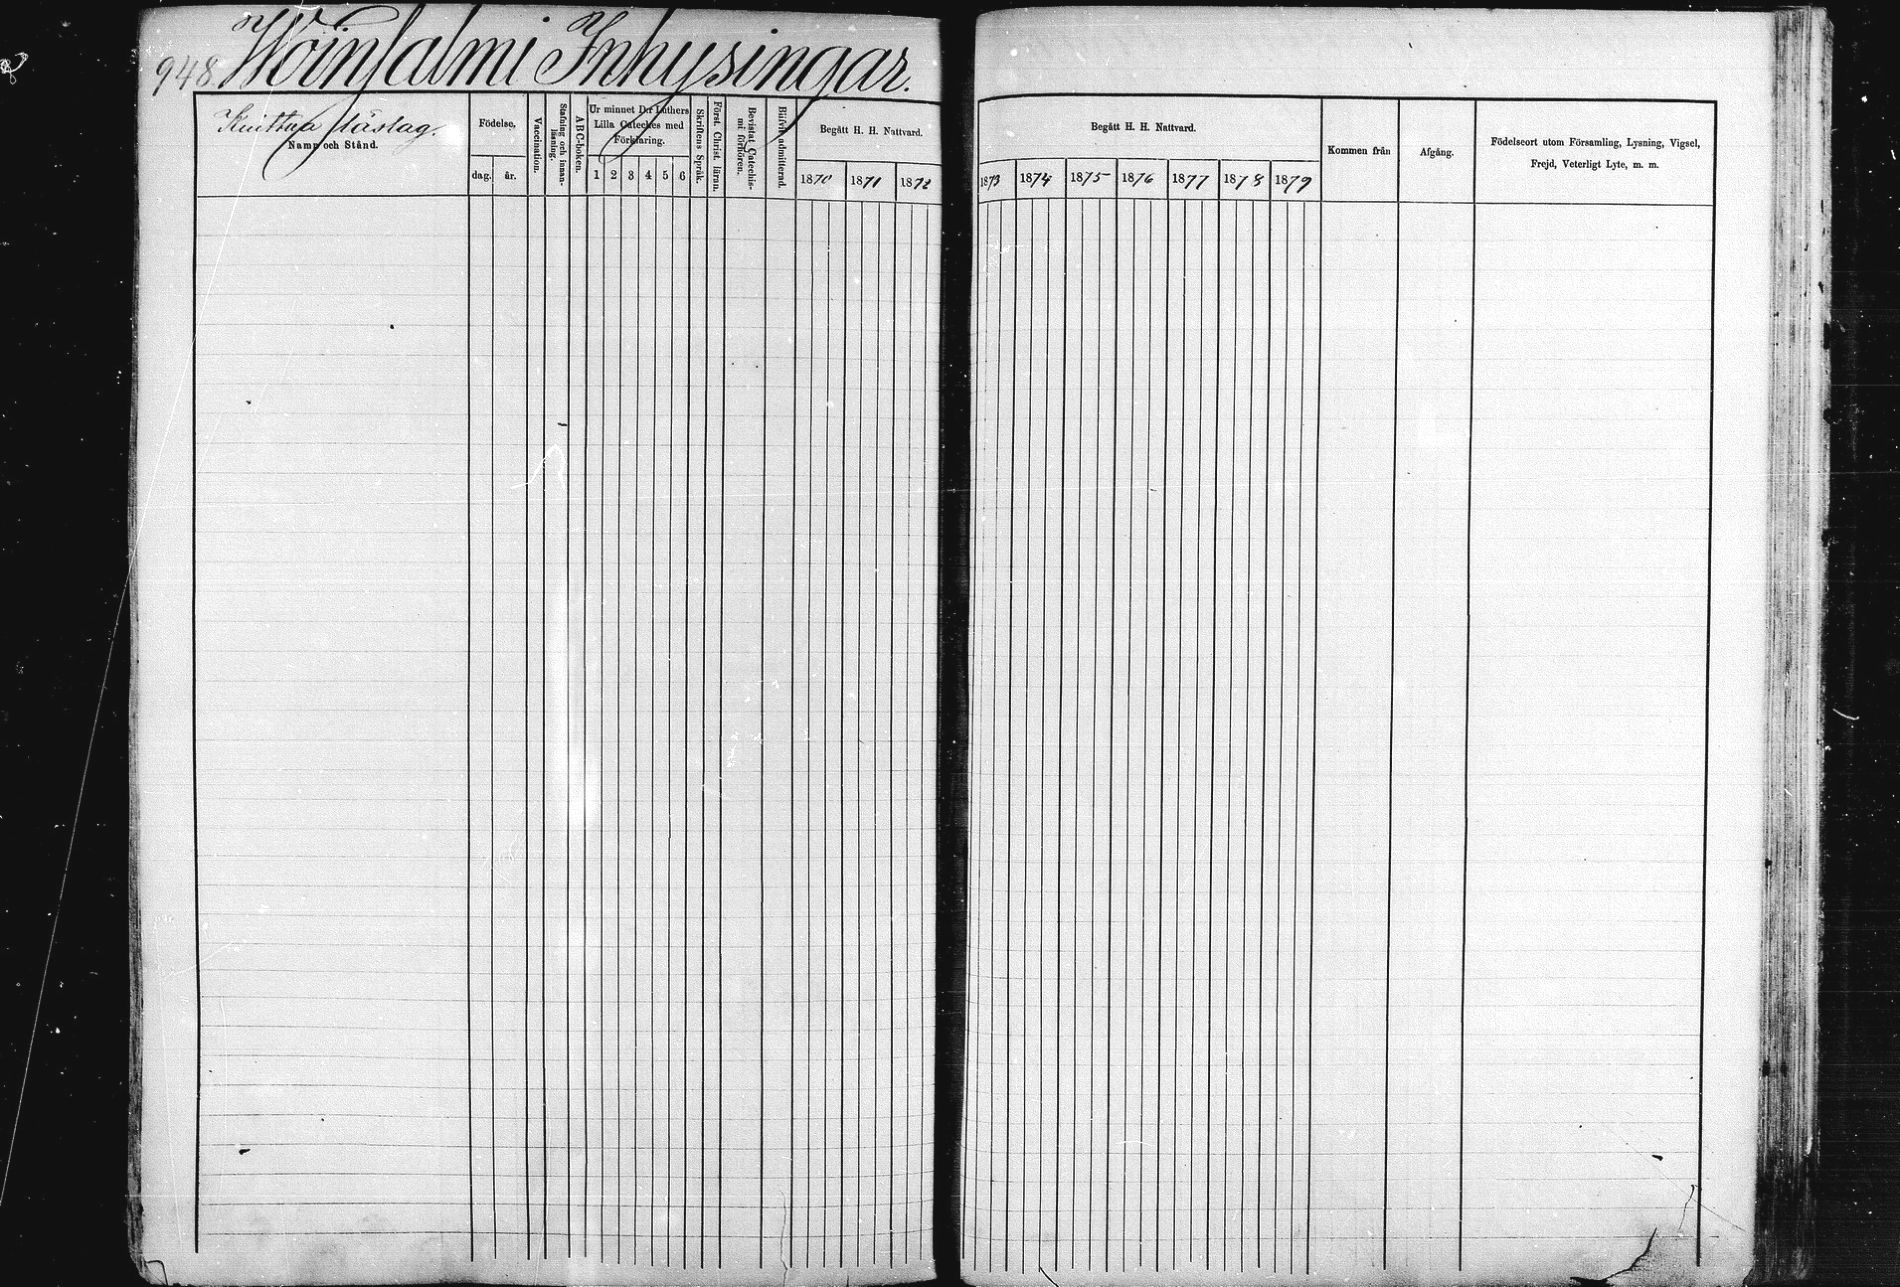 948. Woinsalmi Inhysingar.
Knuttua lästag.
Namn och Stånd.
Födelse.
dag. år.
Vaccination.
Stafning och innan-
läsning.
ABC-boken.
Ur minnet D:r Luthers
Lilla Cateches med
Förklaring.
1 2 3 4 5 6
Skriftens Språk.
Först. Christ. läran.
Bevistat Catechis-
mi förhören.
Blifvit admitterad.
Begått H. H. Nattvard.
1870 1871 1872
Begått H. H. Nattvard.
1873 1874 1875 1876 1877 1878 1879
Kommen från
Afgång.
Födelseort utom Församling, Lysning, Vigsel,
Frejd, Veterligt Lyte, m. m.